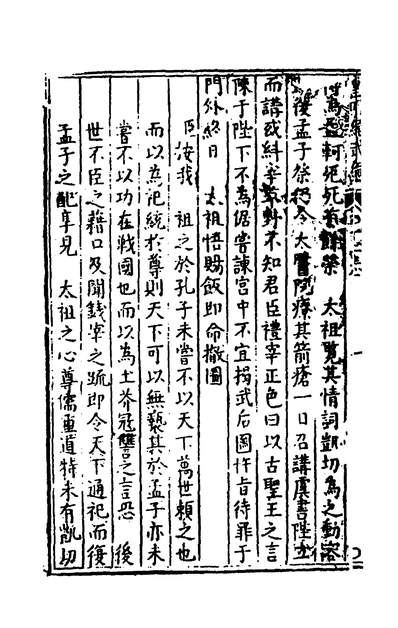 爲孟軻死死有餘榮　太祖覽其情詞凱切爲之動容
復孟子祭仍令太醫院療其箭瘡一日召講虞書陛立
而講或糾宰草野不知君臣禮宰正色曰以古聖王之言
陳于陛下不爲倨嘗諫宮中不宜揭武后圖忤旨待罪于
門外終日　太祖悟賜飯即命撤圖
臣按我　祖之於孔子未嘗不以天下萬世賴之也
而以爲祀統於尊則天下可以無褻其於孟子亦未
嘗不以功在戰國也而以爲土芥冠讐之言恐　後
世不臣之藉口及聞錢宰之疏即令天下通祀而復
孟子之配享見　太祖之心尊儒重道特未有凱切